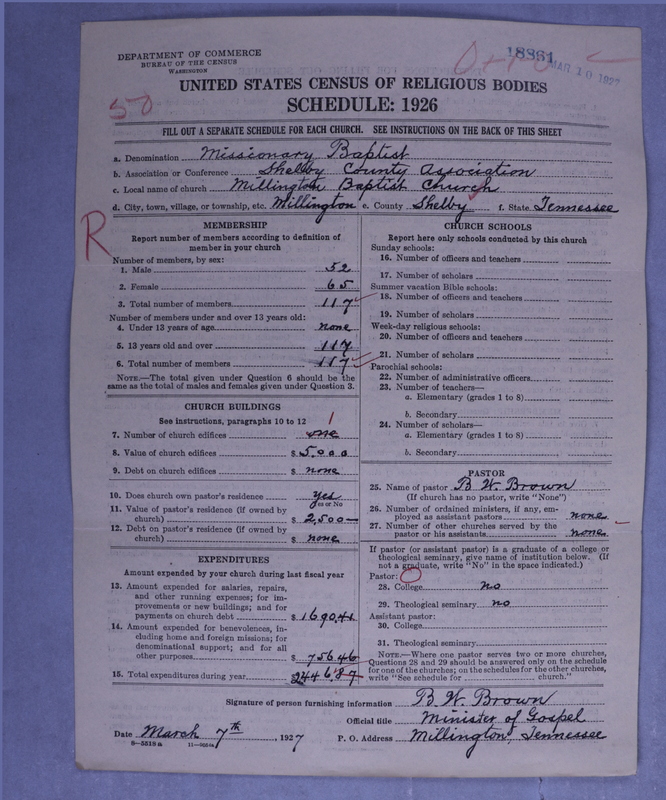 DEPARTMENT OF COMMERCE
BUREAU OF THE CENSUS
WASHINGTON
18361
MAR 10 1927
50
UNITED STATES CENSUS OF RELIGIOUS BODIES
SCHEDULE: 1926
FILL OUT A SEPARATE SCHEDULE FOR EACH CHURCH. SEE INSTRUCTIONS ON THE BACK OF THIS SHEET
a. Denomination Missionary Baptist
b. Association or Conference Shelby County Association
c. Local name of church Millington Baptist Church
d. City, town, village, or township, etc. Millington e. County Shelby f. State Tennessee
R
MEMBERSHIP
Report number of members according to definition of
member in your church
Number of members, by sex:
1. Male 52
2. Female 65
3. Total number of members 117
Number of members under and over 13 years old:
4. Under 13 years of age none
5. 13 years old and over 117
6. Total number of members 117
NOTE.—The total given under Question 6 should be the
same as the total of males and females given under Question 3.
CHURCH BUILDINGS
See instructions, paragraphs 10 to 12
7. Number of church edifices one 1
8. Value of church edifices $ 5,000
9. Debt on church edifices $ none
10. Does church own pastor's residence Yes
Yes or No
11. Value of pastor's residence (if owned by
church) $ 2,500
12. Debt on pastor's residence (if owned by
church) $ none
EXPENDITURES
Amount expended by your church during last fiscal year
13. Amount expended for salaries, repairs,
and other running expenses; for im-
provements or new buildings; and for
payments on church debt $ 1690.41
14. Amount expended for benevolences, in-
cluding home and foreign missions; for
denominational support; and for all
other purposes $ 756.46
15. Total expenditures during year $ 2446.87
CHURCH SCHOOLS
Report here only schools conducted by this church
Sunday schools:
16. Number of officers and teachers
17. Number of scholars
Summer vacation Bible schools:
18. Number of officers and teachers
19. Number of scholars
Week-day religious schools:
20. Number of officers and teachers
21. Number of scholars
Parochial schools:
22. Number of administrative officers
23. Number of teachers—
a. Elementary (grades 1 to 8)
b. Secondary
24. Number of scholars—
a. Elementary (grades 1 to 8)
b. Secondary
PASTOR
25. Name of pastor B. W. Brown
(If church has no pastor, write "None")
26. Number of ordained ministers, if any, em-
ployed as assistant pastors none
27. Number of other churches served by the
pastor or his assistants none
If pastor (or assistant pastor) is a graduate of a college or
theological seminary, give name of institution below. (If
not a graduate, write "No" in the space indicated.)
Pastor:
28. College no
29. Theological seminary no
Assistant pastor:
30. College
31. Theological seminary
NOTE.—Where one pastor serves two or more churches,
Questions 28 and 29 should be answered only on the schedule
for one of the churches; on the schedules for the other churches,
write "See schedule for church."
Signature of person furnishing information B. W. Brown
Official title Minister of Gospel
Date March 7th, 1927 P. O. Address Millington, Tennessee
8-5518a